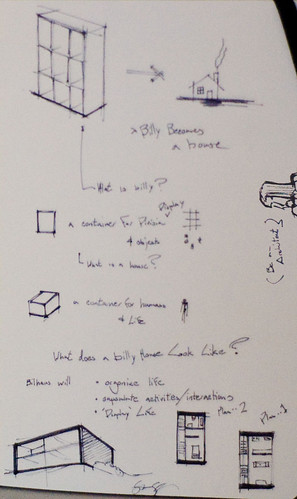 > Billy Becomes
a house
What is billy?
Display
a container for
& objects
What is a house?
a container for humans
& Life
(Be an
Architect)
What does a billy House Look Like?
will
• organise life
• activities/interactions
• "Display" Life
Plan - 2
Plan - 1